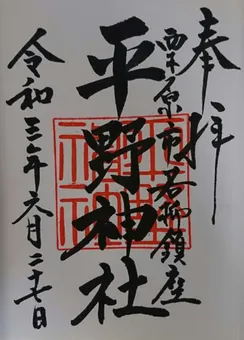 奉拝
栗原市若柳鎮座
平野神社
令和三年六月二十七日